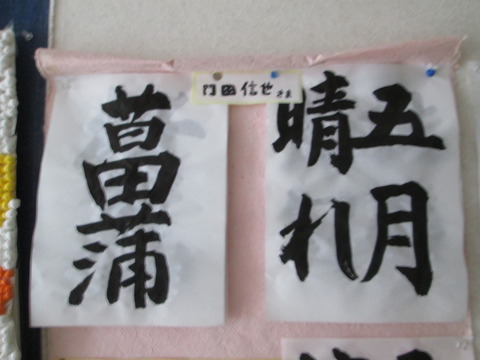 門田信也さま
五月
晴れ
菖蒲